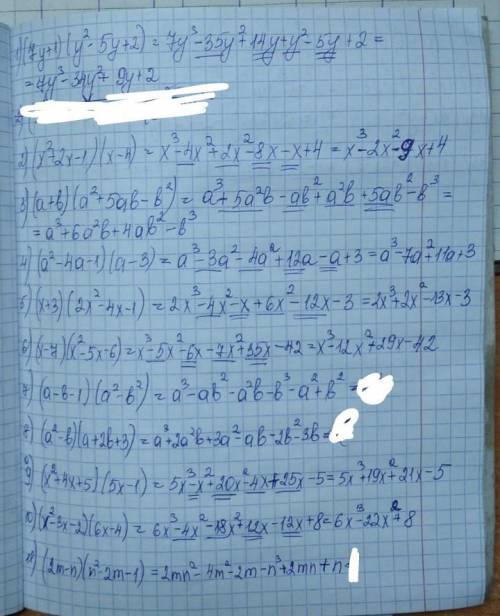 1) (7y+1)(y²-5y+2) = 7y³-35y²+14y+y²-5y+2 =
= 7y³-34y²+9y+2
2) (x²+2x-1)(x-4) = x³-4x²+2x²-8x-x+4 = x³-2x²-9x+4
3) (a+b)(a²+5ab-b²) = a³+5a²b-ab²+a²b+5ab²-b³ =
= a³+6a²b+4ab²-b³
4) (a²-4a-1)(a-3) = a³-3a²-4a²+12a-a+3 = a³-7a²+11a+3
5) (x+3)(2x²-4x-1) = 2x³-4x²-x+6x²-12x-3 = 2x³+2x²-13x-3
6) (x-7)(x²-5x-6) = x³-5x²-6x-7x²+35x-42 = x³-12x²+29x-42
7) (a-b-1)(a²-b²) = a³-ab²-a²b-b³-a²+b² =
8) (a²-b)(a+2b+3) = a³+2a²b+3a²-ab-2b²-3b =
9) (x²+4x+5)(5x-1) = 5x³-x²+20x²-4x+25x-5 = 5x³+19x²+21x-5
10) (x²-3x-2)(6x-4) = 6x³-4x²-18x²+12x-12x+8 = 6x³-22x²+8
11) (2m-n)(n²-2m-1) = 2mn²-4m²-2m-n³+2mn+n